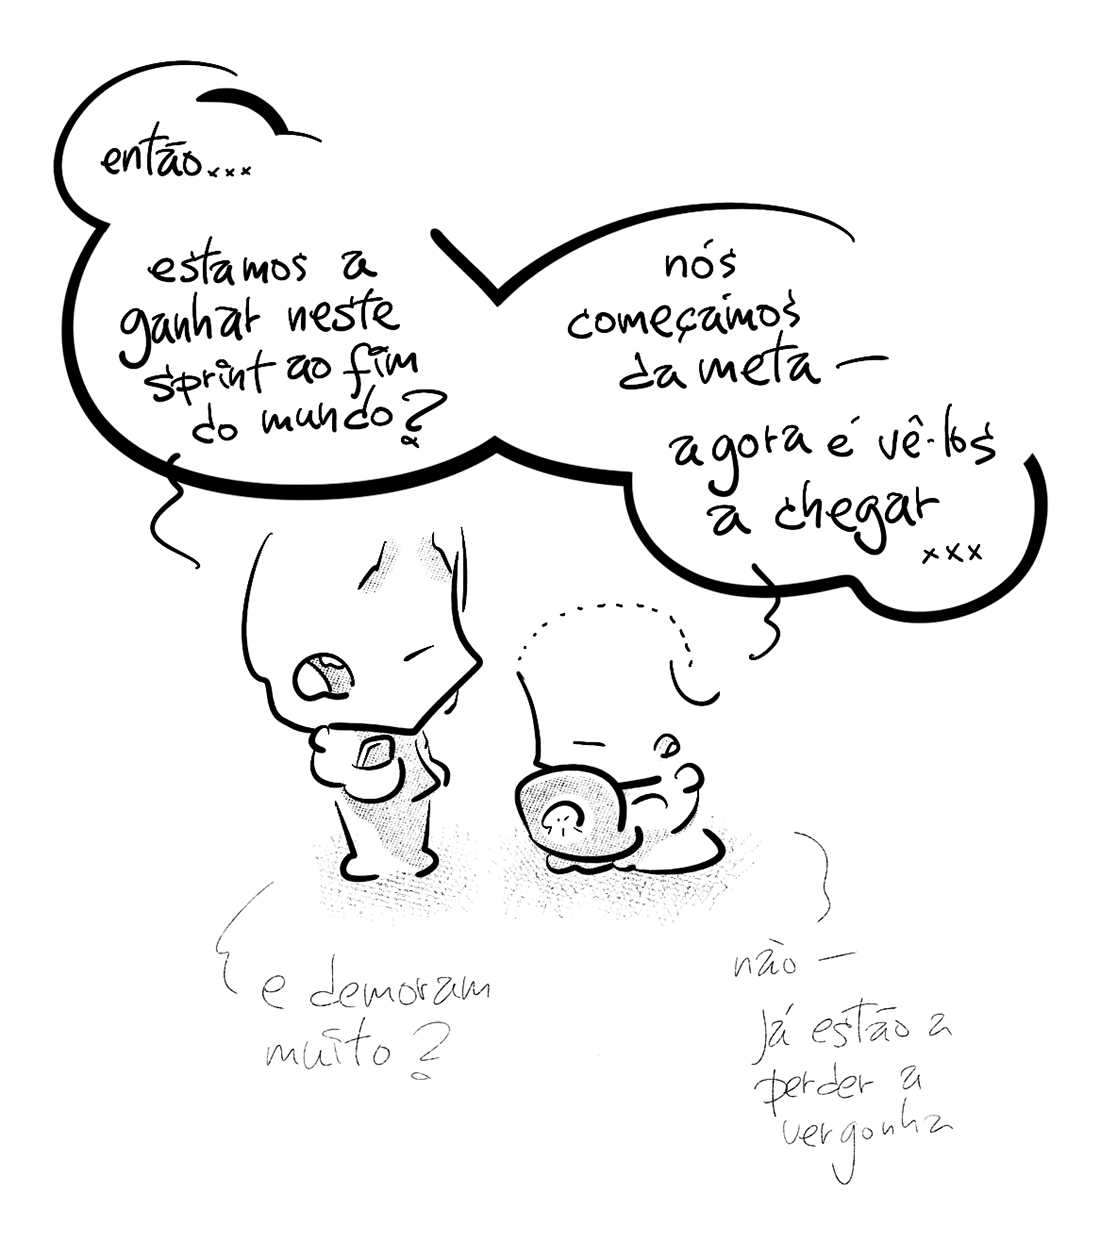 então...
estamos a
ganhar neste
sprint ao fim
do mundo?
nós
começámos
da meta —
agora é vê-los
a chegar
...
e demoram
muito?
não —
já estão a
perder a
vergonha